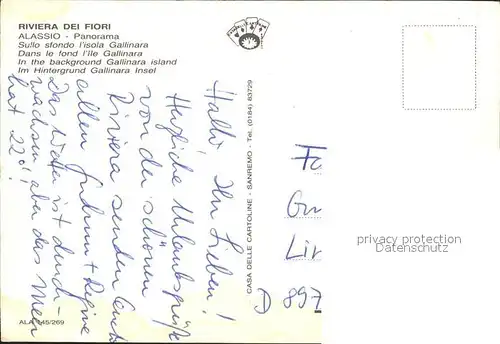 RIVIERA DEI FIORI
ALASSIO - Panorama
Sullo sfondo l'isola Gallinara
Dans le fond l'Ile Gallinara
In the background Gallinara island
Im Hintergrund Gallinara Insel
Hallo Ihr Lieben!
Herzliche Urlaubsgrüße
von der schönen
Riviera senden Euch
allen
Das Wetter ist durch-
wachsen, aber das Meer
hat 22°!
ALA 145/269
CASA DELLE CARTOLINE - SANREMO - Tel. (0184) 83729
Lin
D 897
privacy protection
Datenschutz